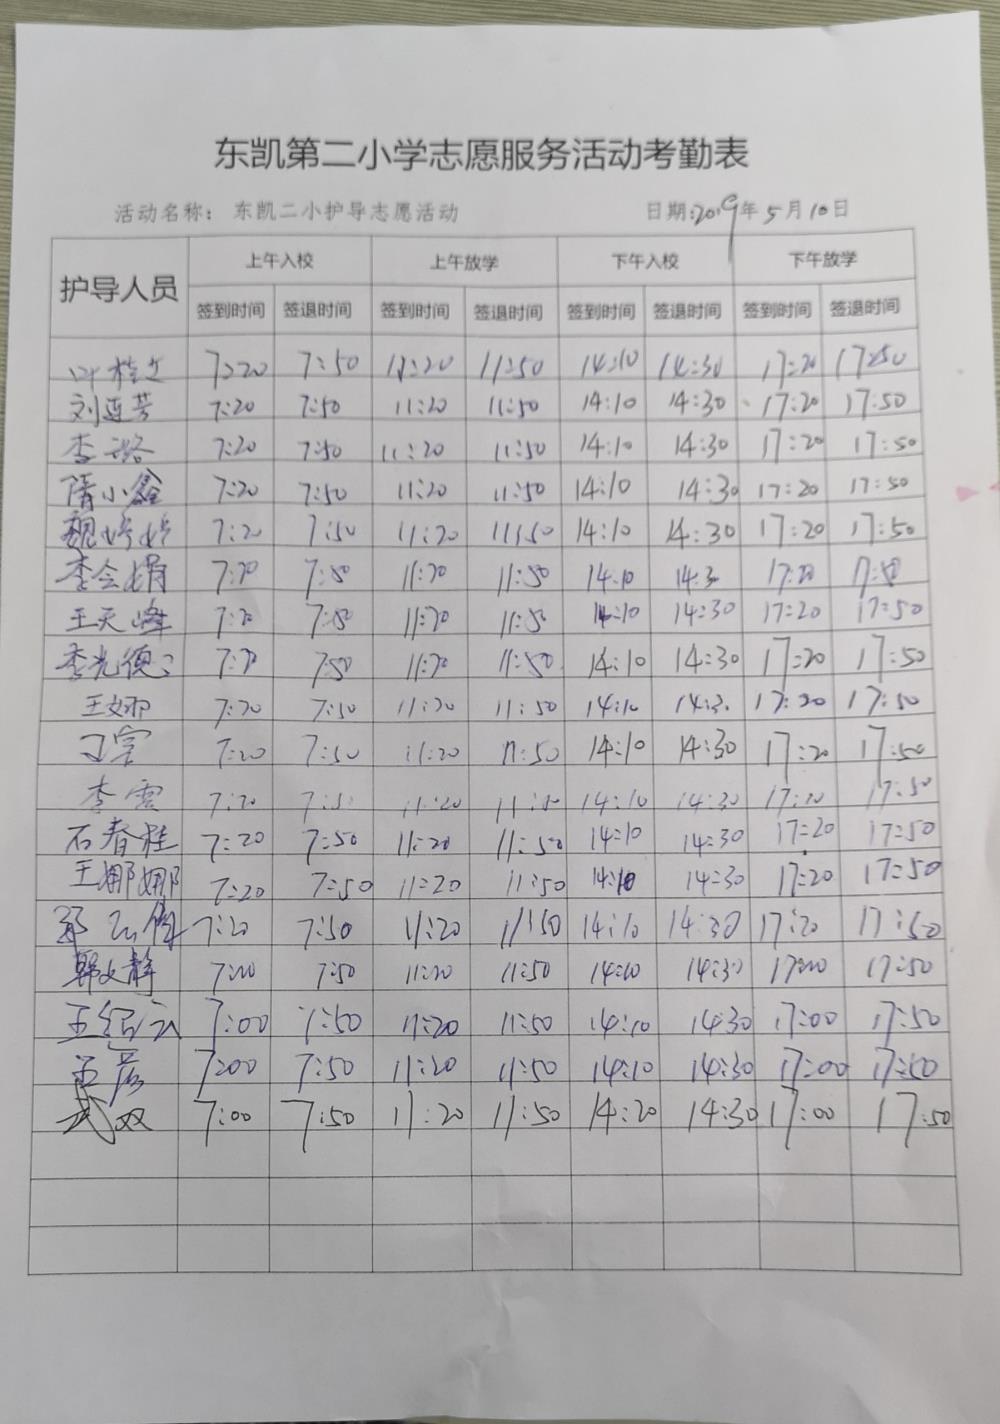 东凯第二小学志愿服务活动考勤表
活动名称：东凯二小护导志愿活动 日期:2019年5月10日
护导人员 上午入校 上午放学 下午入校 下午放学
签到时间 签退时间 签到时间 签退时间 签到时间 签退时间 签到时间 签退时间
叶桂文 7:20 7:50 11:20 11:50 14:10 14:30 17:20 17:50
刘连芳 7:20 7:50 11:20 11:50 14:10 14:30 17:20 17:50
李璐 7:20 7:50 11:20 11:50 14:10 14:30 17:20 17:50
隋小鑫 7:20 7:50 11:20 11:50 14:10 14:30 17:20 17:50
魏婷婷 7:20 7:50 11:20 11:50 14:10 14:30 17:20 17:50
李会娟 7:20 7:50 11:20 11:50 14:10 14:3 17:20 17:50
王天峰 7:20 7:50 11:20 11:50 14:10 14:30 17:20 17:50
李光德 7:20 7:50 11:20 11:50 14:10 14:30 17:20 17:50
王娜 7:20 7:50 11:20 11:50 14:10 14:30 17:20 17:50
丁宁 7:20 7:50 11:20 11:50 14:10 14:30 17:20 17:50
李雪 7:20 7:50 11:20 11:50 14:10 14:30 17:20 17:50
石春桂 7:20 7:50 11:20 11:50 14:10 14:30 17:20 17:50
王娜娜 7:20 7:50 11:20 11:50 14:10 14:30 17:20 17:50
7:20 7:50 11:20 11:50 14:10 14:30 17:20 17:50
韩文静 7:20 7:50 11:20 11:50 14:10 14:30 17:20 17:50
王绍云 7:00 7:50 11:20 11:50 14:10 14:30 17:00 17:50
孟蕊 7:00 7:50 11:20 11:50 14:10 14:30 17:00 17:50
武双 7:00 7:50 11:20 11:50 14:20 14:30 17:00 17:50